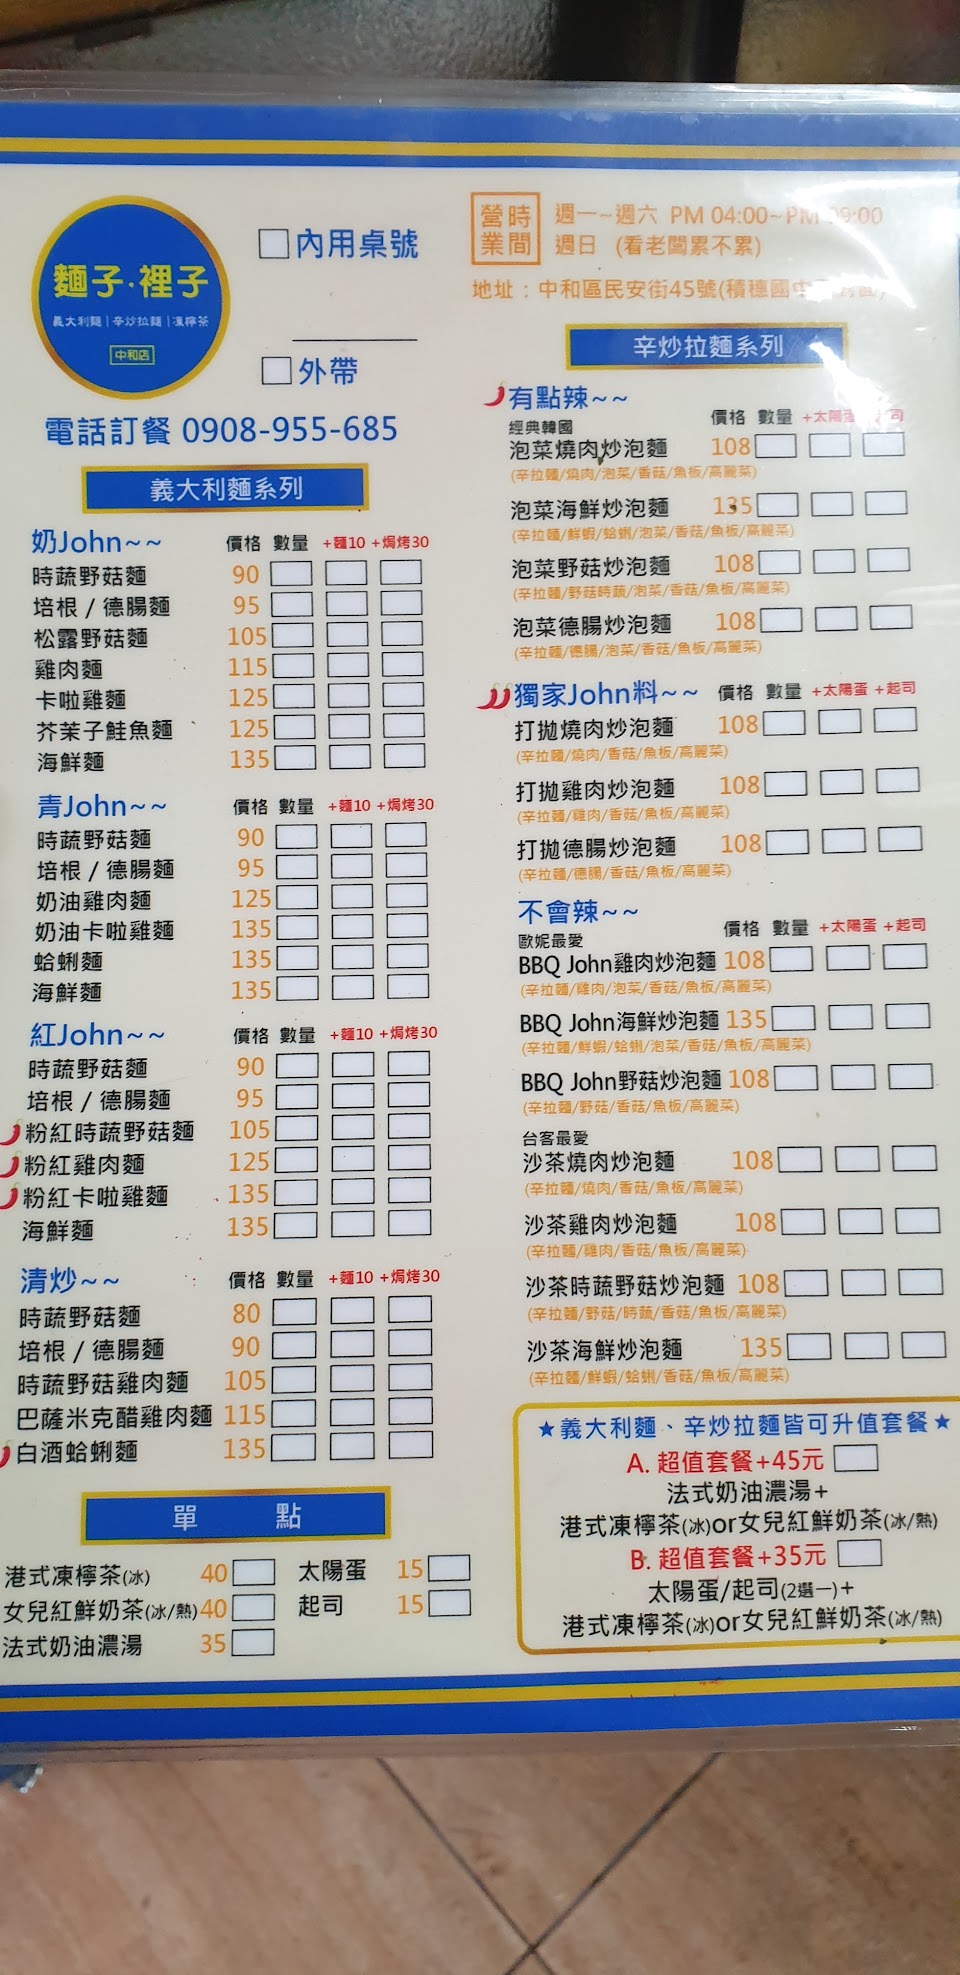 麵子·裡子
義大利麵｜辛炒拉麵｜凍檸茶
中和店
內用桌號
外帶
電話訂餐 0908-955-685
營業時間
週一~週六 PM 04:00~PM 09:00
週日 (看老闆累不累)
地址：中和區民安街45號(積穗國中
義大利麵系列
奶John~~ 價格 數量 +麵10 +焗烤30
時蔬野菇麵 90
培根 / 德腸麵 95
松露野菇麵 105
雞肉麵 115
卡啦雞麵 125
芥茉子鮭魚麵 125
海鮮麵 135
青John~~ 價格 數量 +麵10 +焗烤30
時蔬野菇麵 90
培根 / 德腸麵 95
奶油雞肉麵 125
奶油卡啦雞麵 135
蛤蜊麵 135
海鮮麵 135
紅John~~ 價格 數量 +麵10 +焗烤30
時蔬野菇麵 90
培根 / 德腸麵 95
粉紅時蔬野菇麵 105
粉紅雞肉麵 125
粉紅卡啦雞麵 135
海鮮麵 135
清炒~~ 價格 數量 +麵10 +焗烤30
時蔬野菇麵 80
培根 / 德腸麵 90
時蔬野菇雞肉麵 105
巴薩米克醋雞肉麵 115
白酒蛤蜊麵 135
單點
港式凍檸茶(冰) 40 太陽蛋 15
女兒紅鮮奶茶(冰/熱) 40 起司 15
法式奶油濃湯 35
辛炒拉麵系列
有點辣~~ 價格 數量 +太陽蛋 司
經典韓國
泡菜燒肉炒泡麵 108
(辛拉麵/燒肉/泡菜/香菇/魚板/高麗菜)
泡菜海鮮炒泡麵 135
(辛拉麵/鮮蝦/蛤蜊/泡菜/香菇/魚板/高麗菜)
泡菜野菇炒泡麵 108
(辛拉麵/野菇時蔬/泡菜/香菇/魚板/高麗菜)
泡菜德腸炒泡麵 108
(辛拉麵/德腸/泡菜/香菇/魚板/高麗菜)
獨家John料~~ 價格 數量 +太陽蛋 +起司
打拋燒肉炒泡麵 108
(辛拉麵/燒肉/香菇/魚板/高麗菜)
打拋雞肉炒泡麵 108
(辛拉麵/雞肉/香菇/魚板/高麗菜)
打拋德腸炒泡麵 108
(辛拉麵/德腸/香菇/魚板/高麗菜)
不會辣~~ 價格 數量 +太陽蛋 +起司
歐妮最愛
BBQ John雞肉炒泡麵 108
(辛拉麵/雞肉/泡菜/香菇/魚板/高麗菜)
BBQ John海鮮炒泡麵 135
(辛拉麵/鮮蝦/蛤蜊/泡菜/香菇/魚板/高麗菜)
BBQ John野菇炒泡麵 108
(辛拉麵/野菇/香菇/魚板/高麗菜)
台客最愛
沙茶燒肉炒泡麵 108
(辛拉麵/燒肉/香菇/魚板/高麗菜)
沙茶雞肉炒泡麵 108
(辛拉麵/雞肉/香菇/魚板/高麗菜)
沙茶時蔬野菇炒泡麵 108
(辛拉麵/野菇/時蔬/香菇/魚板/高麗菜)
沙茶海鮮炒泡麵 135
(辛拉麵/鮮蝦/蛤蜊/香菇/魚板/高麗菜)
★義大利麵、辛炒拉麵皆可升值套餐★
A. 超值套餐+45元
法式奶油濃湯+
港式凍檸茶(冰)or女兒紅鮮奶茶(冰/熱)
B. 超值套餐+35元
太陽蛋/起司(2選一)+
港式凍檸茶(冰)or女兒紅鮮奶茶(冰/熱)